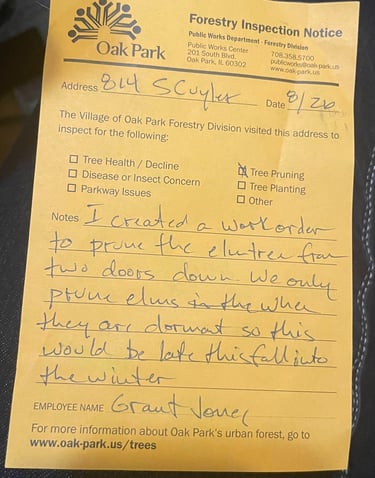 Oak Park
Forestry Inspection Notice
Public Works Department - Forestry Division
Public Works Center
201 South Blvd.
Oak Park, IL 60302
708.358.5700
publicworks@oak-park.us
www.oak-park.us
Address 814 S Cuyler Date 8/26
The Village of Oak Park Forestry Division visited this address to
inspect for the following:
Tree Health / Decline
Disease or Insect Concern
Parkway Issues
Tree Pruning
Tree Planting
Other
Notes I created a work order
to prune the elm tree from
two doors down. We only
prune elms in the when
they are dormant so this
would be late this fall into
the winter
EMPLOYEE NAME Grant Jones
For more information about Oak Park's urban forest, go to
www.oak-park.us/trees